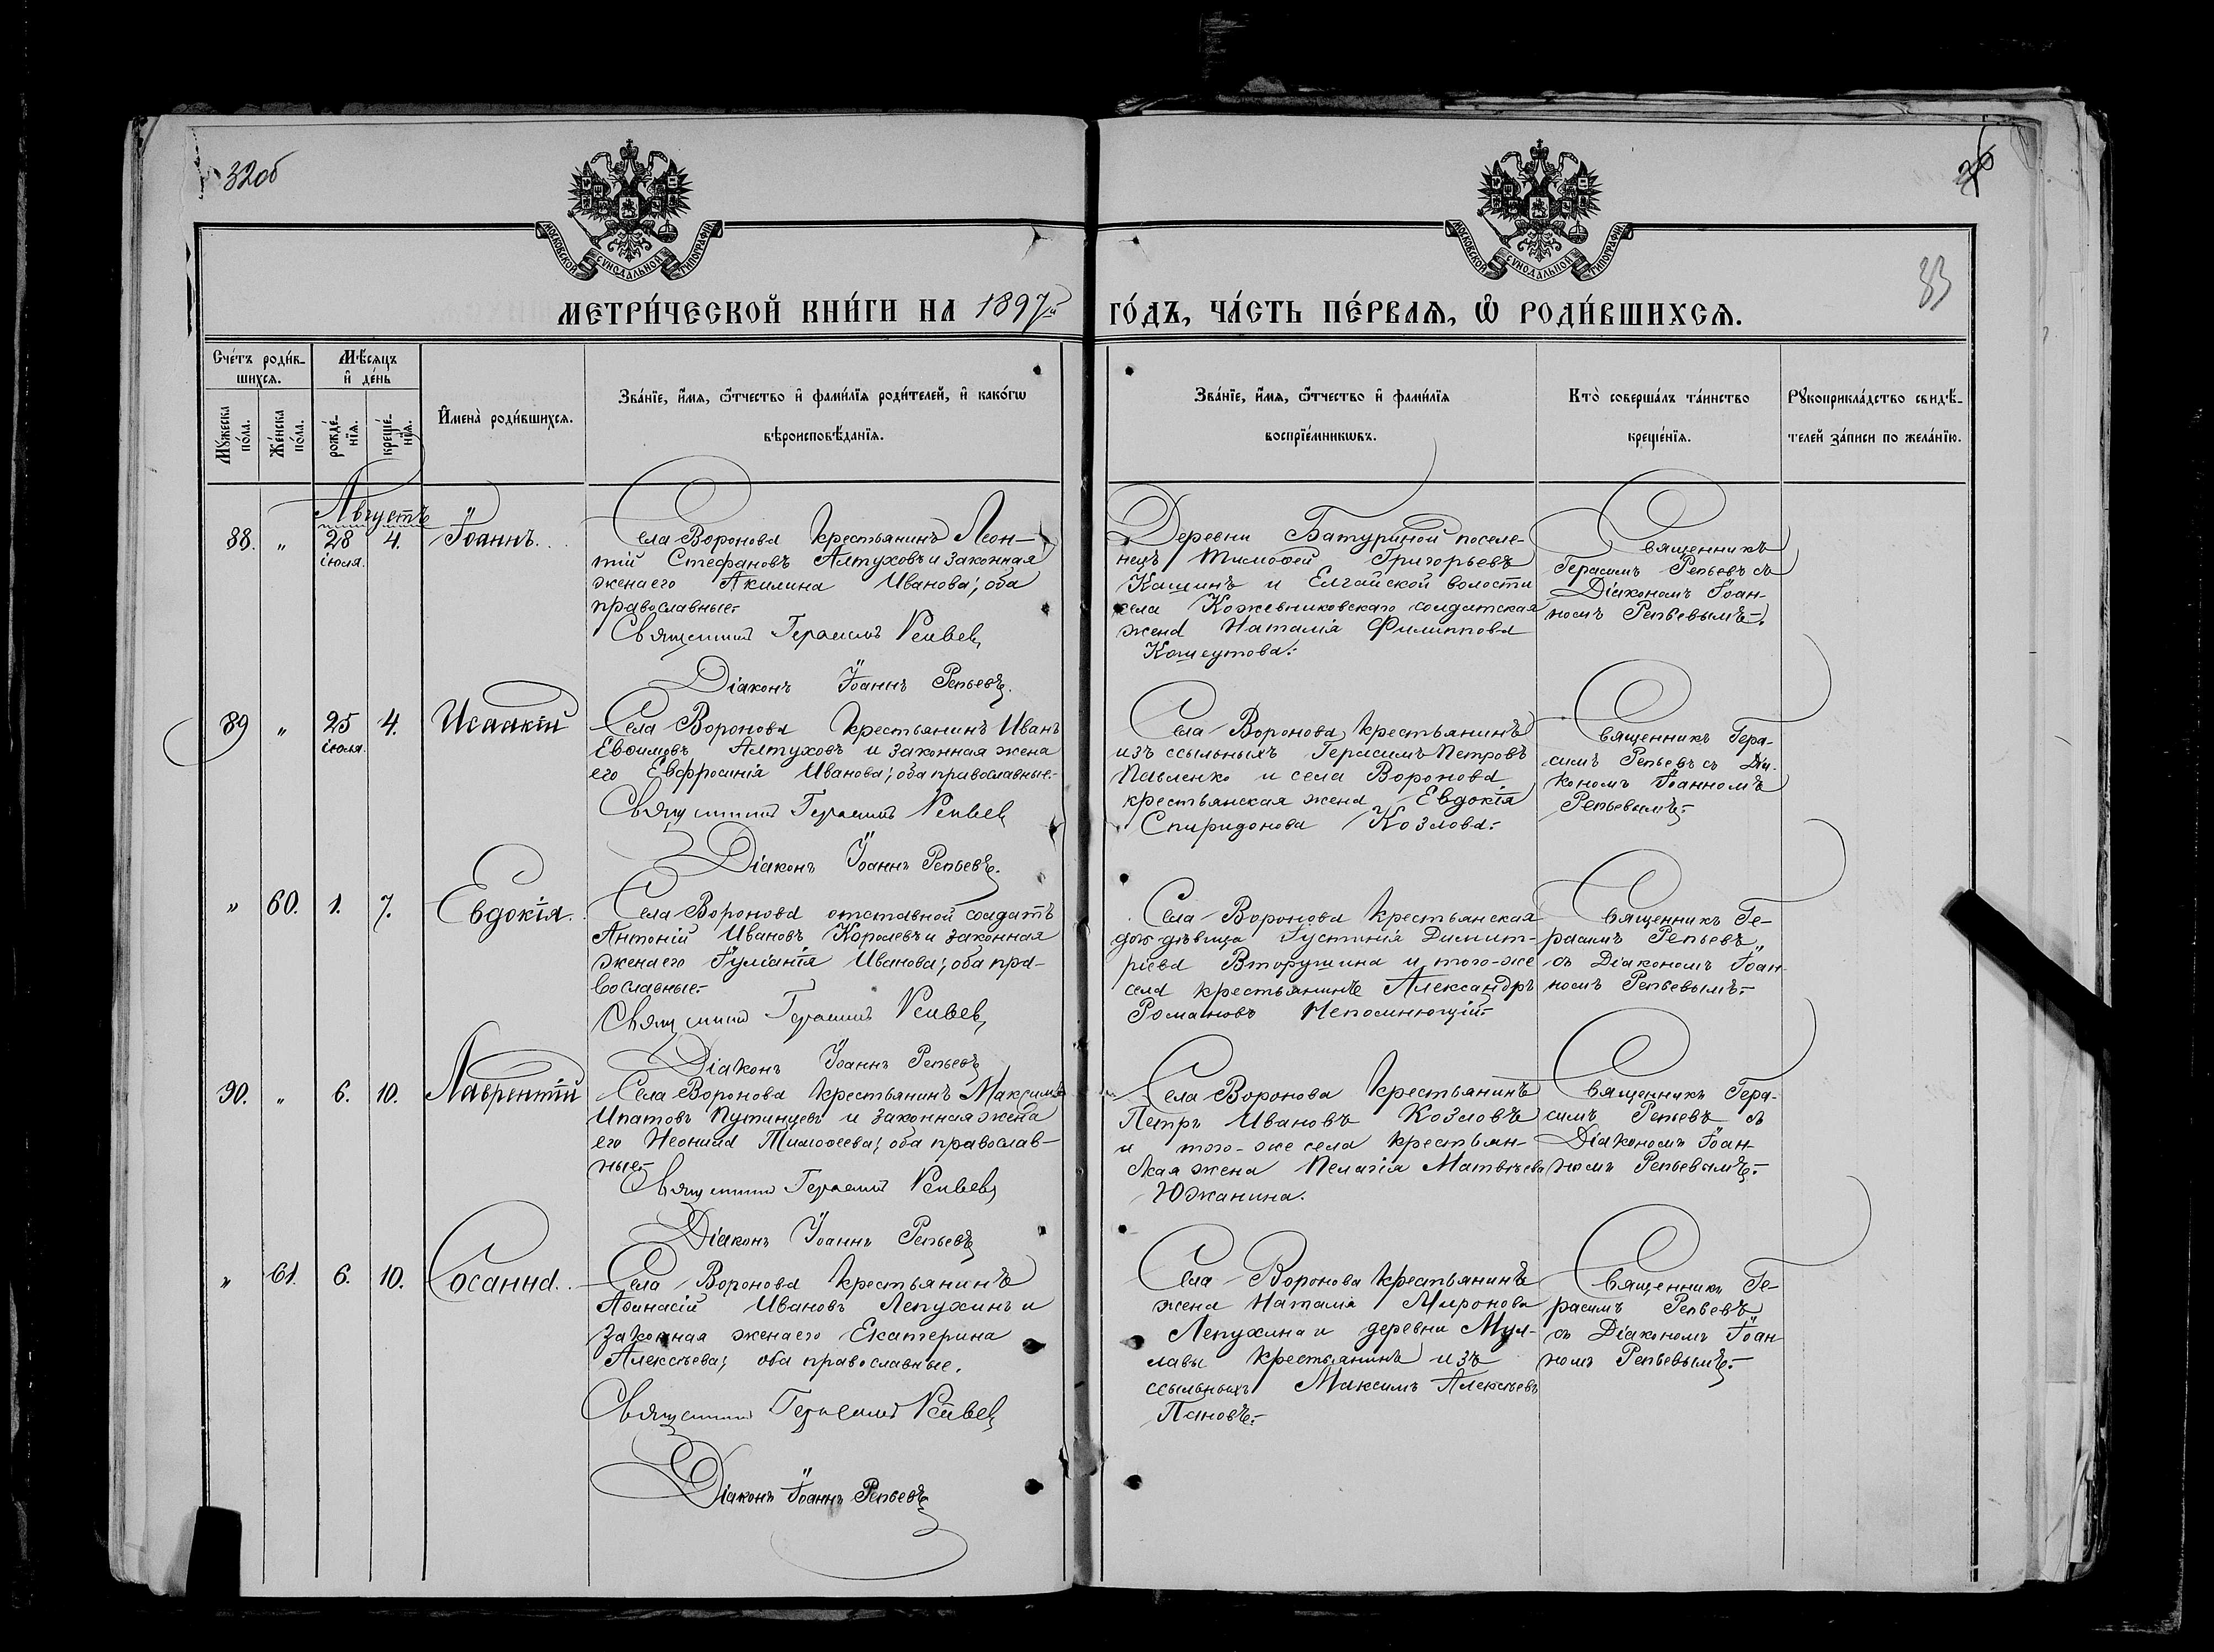 32об
33
МОСКОВСКОЙ СѴНОДАЛЬНОЙ ТИПОГРАФІИ
МОСКОВСКОЙ СѴНОДАЛЬНОЙ ТИПОГРАФІИ
МЕТРИ́ЧЕСКОЙ КНИ́ГИ НА 1897й ГО́ДЪ, ЧА́СТЬ ПЕ́РВАѦ, Ѡ҆ РОДИ́ВШИХСѦ.
Сче́тъ роди́в-
шихсѧ.
Мѣ́сѧцъ
и҆ де́нь
Мꙋ́жеска
по́ла.
Же́нска
по́ла.
рожде́-
нїѧ.
креще́-
нїѧ.
И҆мена̀ роди́вшихсѧ.
Зва́нїе, и҆́мѧ, ѻ҆́тчество и҆ фами́лїѧ роди́телей, и҆ како́гѡ
вѣроисповѣ́данїѧ.
Зва́нїе, и҆́мѧ, ѻ҆́тчество и҆ фами́лїѧ
воспрїе́мникѡвъ.
Кто̀ соверша́лъ та́инство
креще́нїѧ.
Рꙋкоприкла́дство свидѣ́-
телей за́писи по жела́нїю.
Августъ
88. „ 28 4. Іоаннъ.
іюля.
Села Воронова крестьянинъ Леон-
тій Стефановъ Алтуховъ и законная
жена его Акилина Иванова; оба
православные.-
Священникъ Герасимъ Репьевъ
Діаконъ Іоаннъ Репьевъ.
Деревни Батуриной поселе-
нецъ Тимофей Григорьевъ
Кашинъ и Елгайской волости
села Кожевниковскаго солдатская
жена Наталія Филиппова
Кошеутова.-
Священникъ
Герасимъ Репьевъ съ
Діакономъ Іоан-
номъ Репьевымъ.-
89 „ 25 4. Исаакій
іюля.
Села Воронова крестьянинъ Иванъ
Евѳимовъ Алтуховъ и законная жена
его Евфросинія Иванова; оба православные.-
Священникъ Герасимъ Репьевъ
Діаконъ Іоаннъ Репьевъ.
Села Воронова крестьянинъ
изъ ссыльныхъ Герасимъ Петровъ
Павленко и села Воронова
крестьянская жена Евдокія
Спиридонова Козлова.-
Священникъ Гера-
симъ Репьевъ съ Діа-
кономъ Іоанномъ
Репьевымъ.-
„ 60. 1. 7. Евдокія.
Села Воронова отставной солдатъ
Антоній Ивановъ Королевъ и законная
жена его Іуліанія Иванова; оба пра-
вославные.-
Священникъ Герасимъ Репьевъ
Діаконъ Іоаннъ Репьевъ
Села Воронова крестьянская
дочь дѣвица Іустинія Димит-
ріева Вторушина и того-же
села крестьянинъ Александръ
Романовъ Непомнющій.-
Священникъ Ге-
расимъ Репьевъ
съ Діакономъ Іоан-
номъ Репьевымъ.-
90. „ 6. 10. Лаврентій
Села Воронова крестьянинъ Максимъ
Ипатовъ Путинцевъ и законная жена
его Неонила Тимоѳеева; оба православ-
ные.-
Священникъ Герасимъ Репьевъ
Діаконъ Іоаннъ Репьевъ
Села Воронова крестьянинъ
Петръ Ивановъ Козловъ
и того-же села крестьян-
ская жена Пелагія Матвѣева
Южанина.
Священникъ Гера-
симъ Репьевъ съ
Діакономъ Іоан-
номъ Репьевымъ.-
„ 61. 6. 10. Сосанна.
Села Воронова крестьянинъ
Аѳанасій Ивановъ Лепухинъ и
законная жена его Екатерина
Алексѣева; оба православные.
Священникъ Герасимъ Репьевъ
Діаконъ Іоаннъ Репьевъ
Села Воронова крестьянинъ
жена Наталія Миронова
Лепухина и деревни Мул-
лавы крестьянинъ изъ
ссыльныхъ Максимъ Алексѣевъ
Пановъ.-
Священникъ Ге-
расимъ Репьевъ
съ Діакономъ Іоан-
номъ Репьевымъ.-